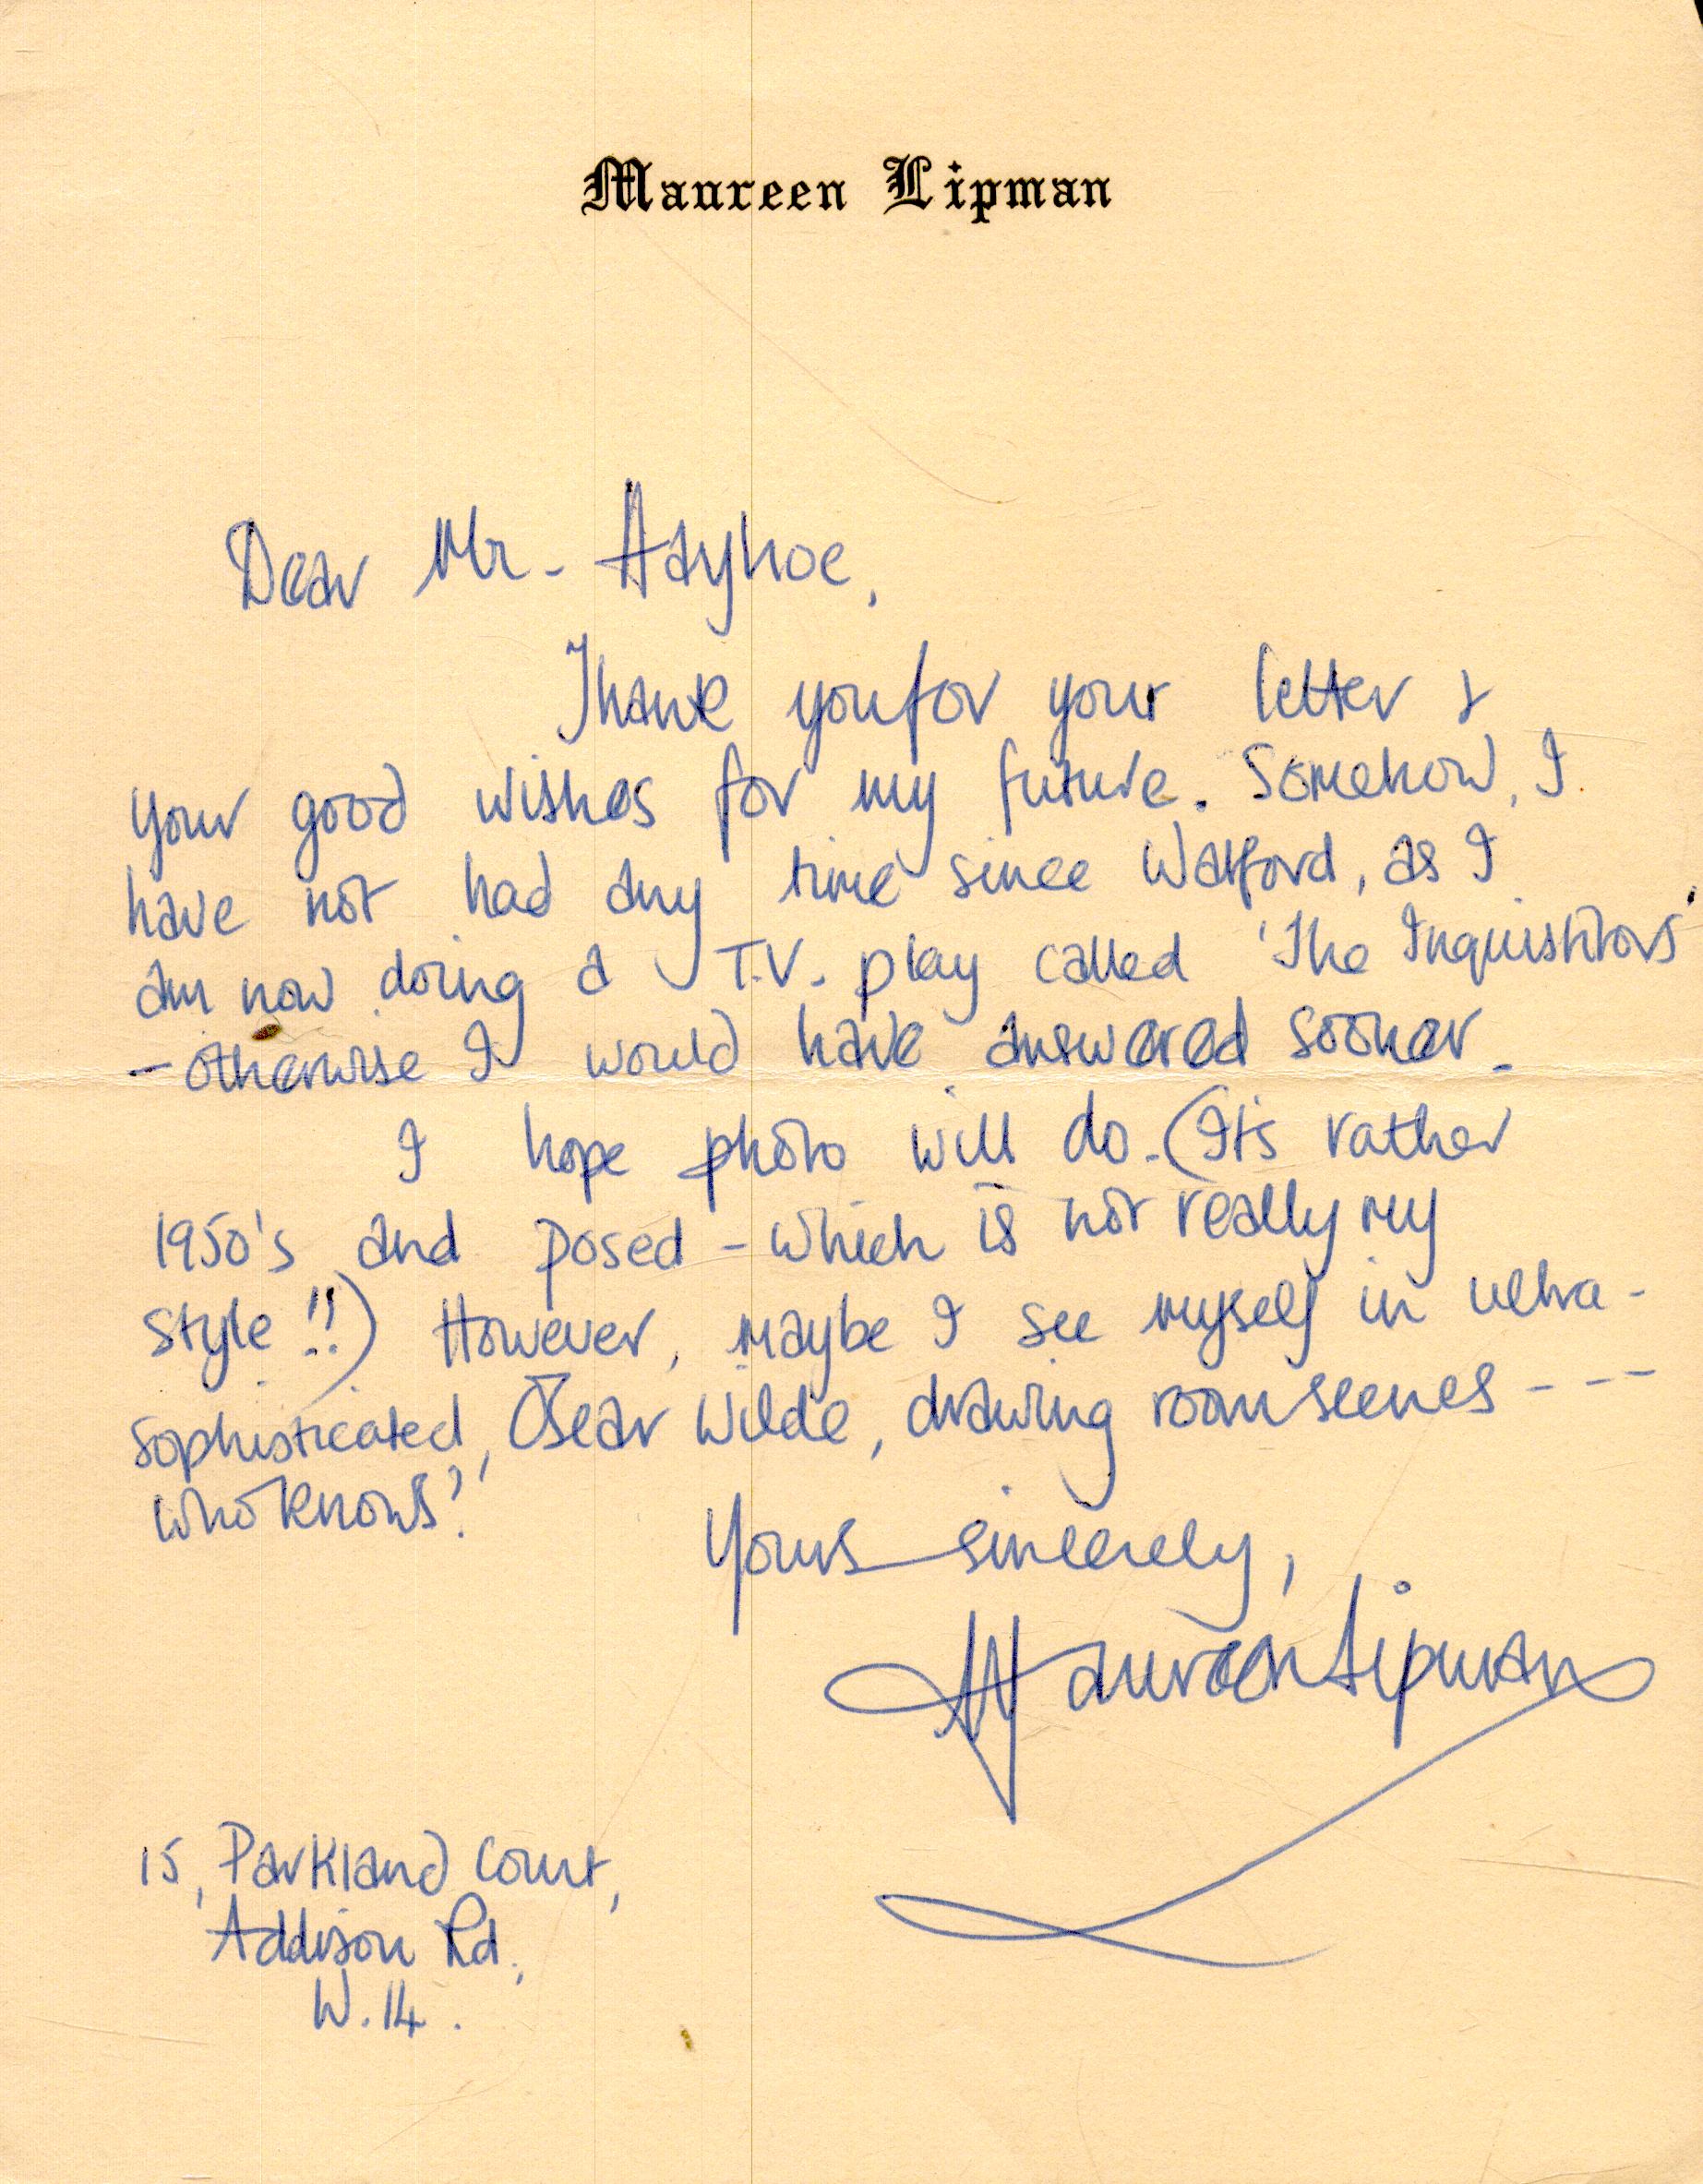 Maureen Lipman
Dear Mr. Adyhoe,
Thank you for your letter &
your good wishes for my future. Somehow, I
have not had any time since Watford, as I
am now doing a T.V. play called 'The Inquisitors'
- otherwise I would have answered sooner.
I hope photo will do. (It's rather
1950's and posed - which is not really my
style!!) However, maybe I see myself in ultra-
sophisticated, Oscar Wilde, drawing room scenes - - -
who knows?
Yours sincerely,
Maureen Lipman
15, Parkland Court,
Addison Rd,
W.14.